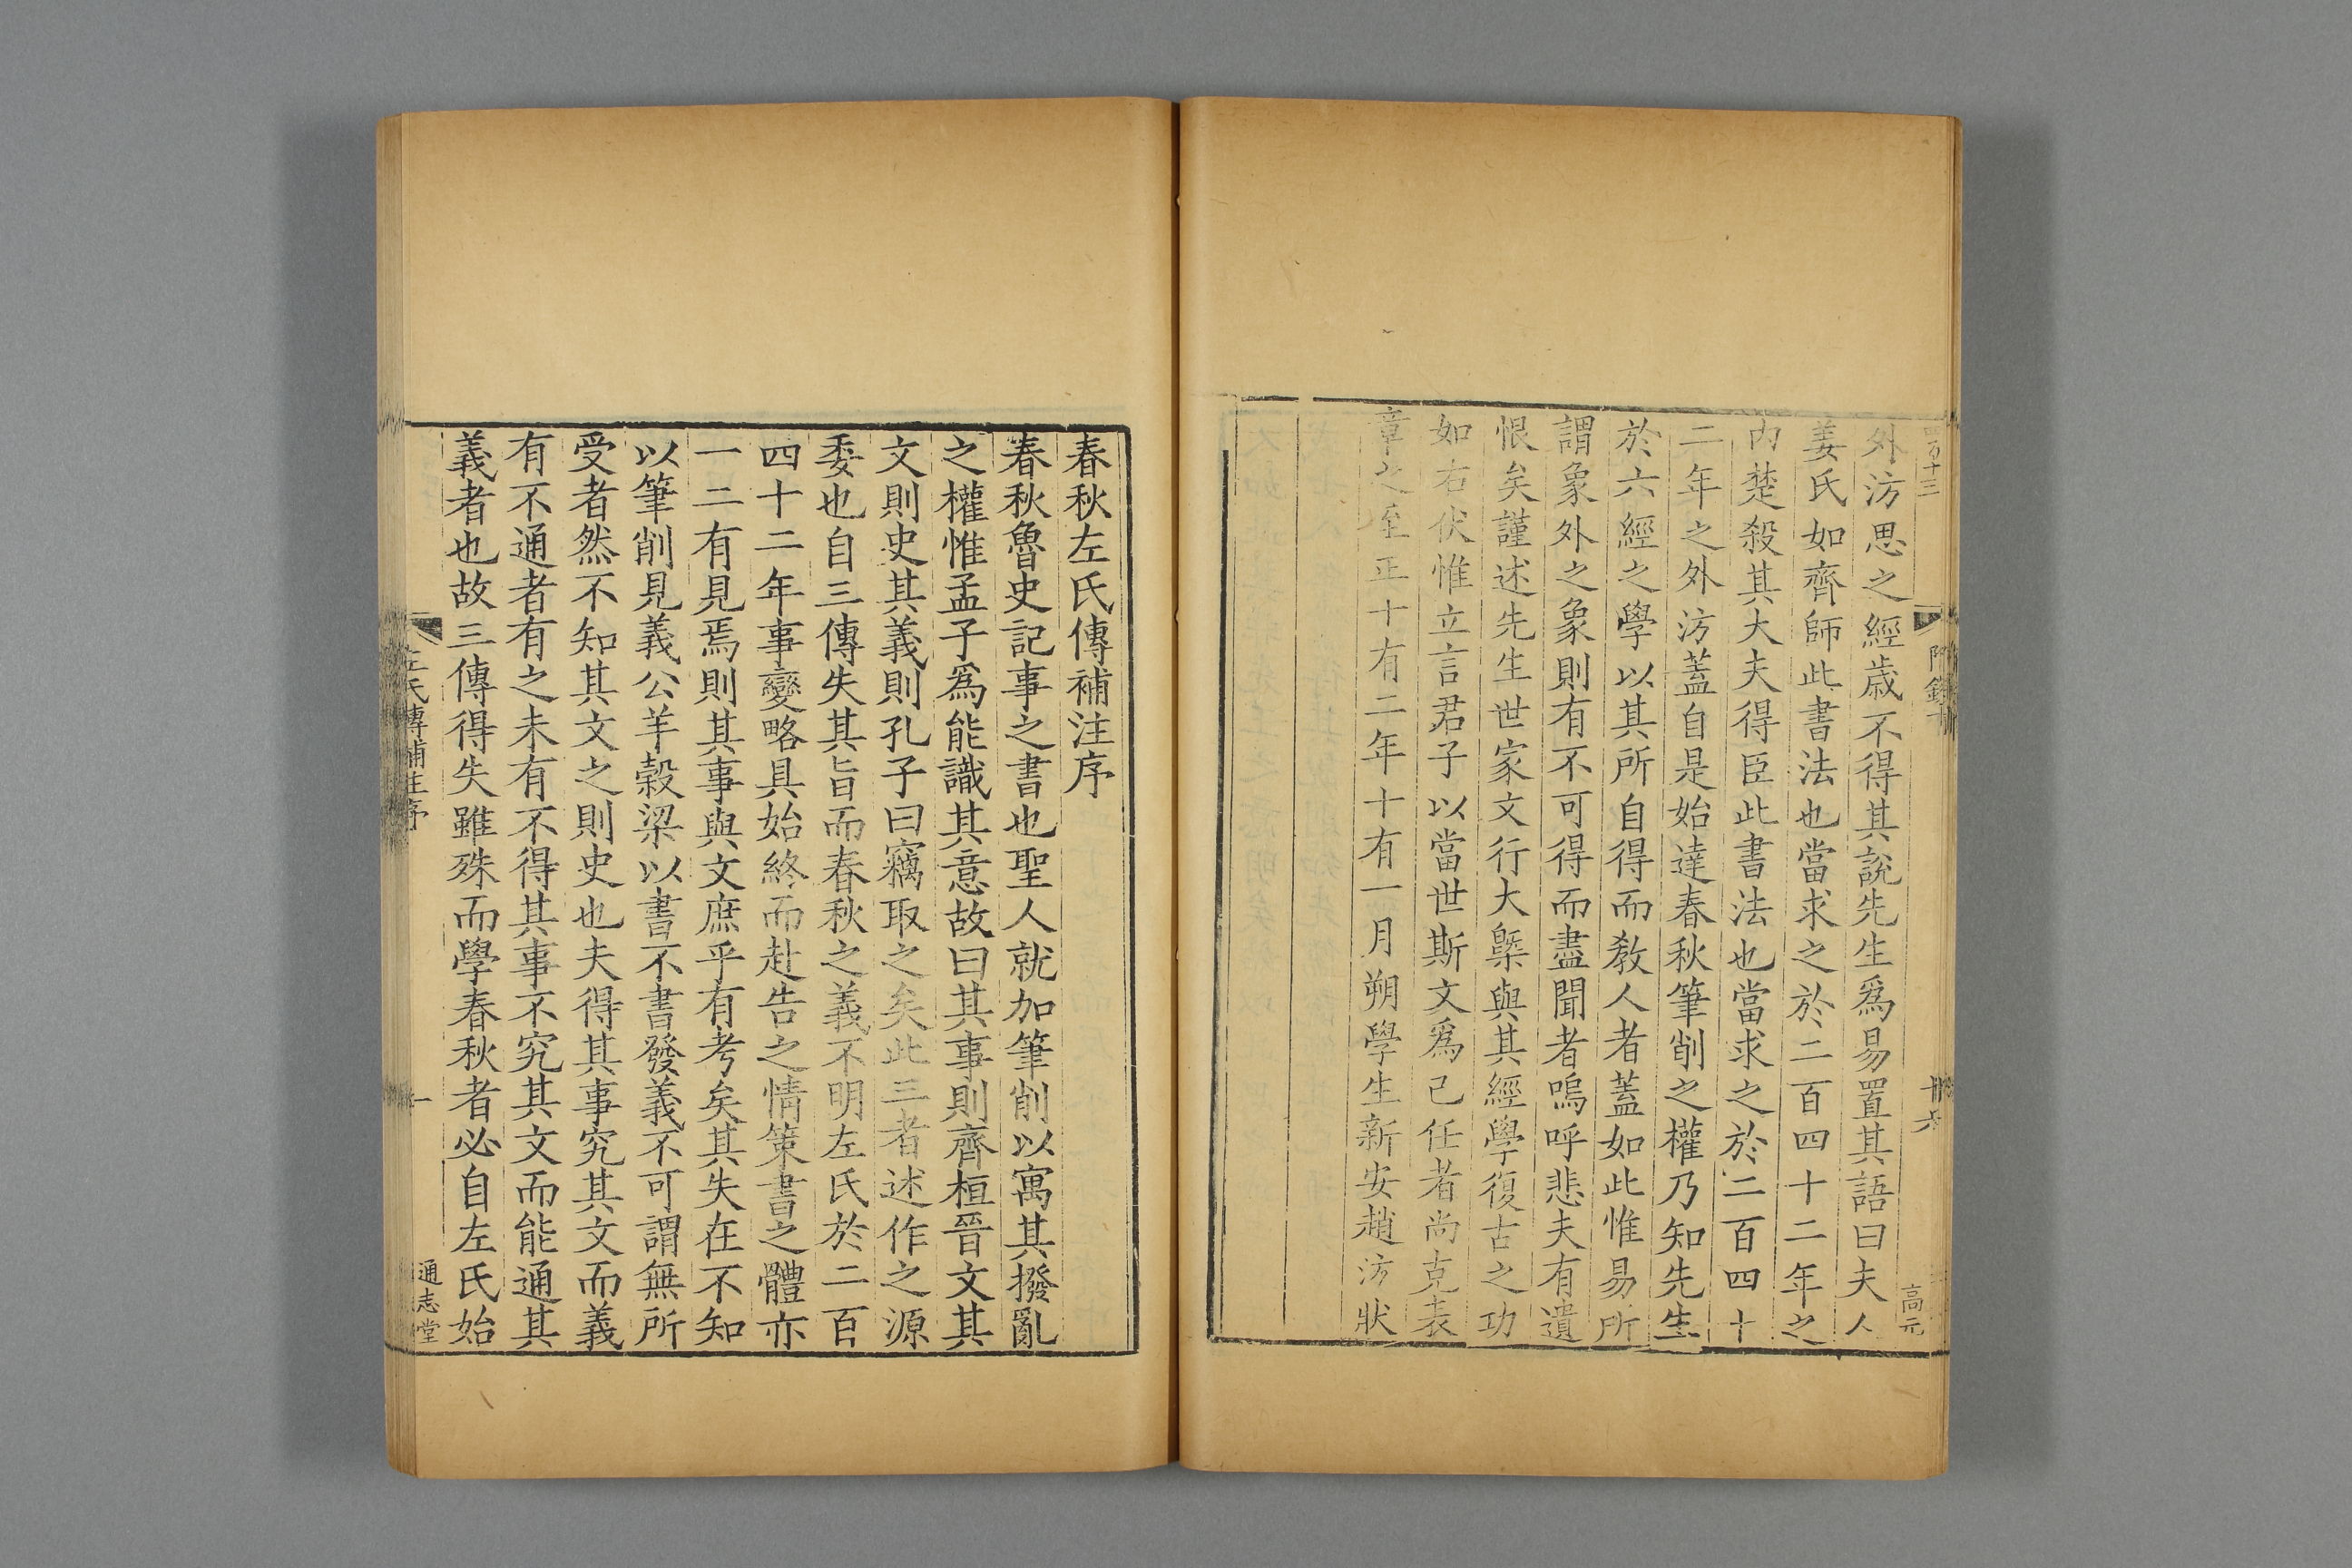 外汸思之經歳不得其說先生爲易置其語曰夫人
姜氏如齊師此書法也當求之於二百四十二年之
内楚殺其大夫得臣此書法也當求之於二百四十
二年之外汸蓋自是始達春秋筆削之權乃知先生
於六經之學以其所自得而教人者蓋如此惟易所
謂象外之象則有不可得而盡聞者嗚呼悲夫有遺
恨矣謹述先生世家文行大槩與其經學復古之功
如右伏惟立言君子以當世斯文爲己任者尚克表
章之至正十有二年十有一月朔學生新安趙汸狀
高元
春秋左氏傳補注序
春秋魯史記事之書也聖人就加筆削以寓其撥亂
之權惟孟子爲能識其意故曰其事則齊桓晉文其
文則史其義則孔子曰竊取之矣此三者述作之源
委也自三傳失其旨而春秋之義不明左氏於二百
四十二年事變略具始終而赴告之情策書之體亦
一二有見焉則其事與文庶乎有考矣其失在不知
以筆削見義公羊榖梁以書不書發義不可謂無所
受者然不知其文之則史也夫得其事究其文而義
有不通者有之未有不得其事不究其文而能通其
義者也故三傳得失雖殊而學春秋者必自左氏始
左氏傳補注序
一
通志堂